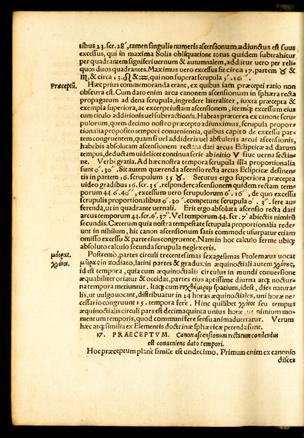 tibus 23. scr. 28', tamen singulis numeris ascensionum adiunctus est suus
excessus, qui in maxima Solis obliquatione totus quidem subtrahitur
per quadrantem signiferi uernum & autumnalem, additur uero per reli-
quos duos quadrantes. Maximus uero excessus fit circa 17. partem ♉ &
♏, & circa 13. ♌ & ♒, qui non superat scrupula
Præceptũ. Hæc prius commemoranda erant, ex quibus iam præcepti ratio non
obscura est. Cum dato enim arcu canonem ascensionum in sphæra recta
propagatum ad dena scrupula, ingredere lateraliter, iuxta præcepta &
exempla superiora, ac excerpe istam ascensionem, item excessum eius
cum titulo additionis uel subtractionis. Habes præterea ex canone scru-
pulorum, quem decimo nostro præcepto adiunximus, scrupula propor-
tionalia proposito tempori conuenientia, quibus capito de excessu par-
tem congruentem, quam si uel addideris uel abstuleris arcui ascensionis,
habebis absolutam ascensionem rectam dati arcus Eclipticæ ad datum
tempus, deductam uidelicet continua serie ab initio ♈ siue uerna sectio-
ne. Verbi gratia, Ad hæc nostra tempora scrupula illa proportionalia
sunt
in partem 16. scrupulum
uideo gradibus 16. scr. respondere ascensionem quidem rectam tem-
porum 44 excessum uero scrupulorum de quo excessu
scrupulis proportionalibus competunt scrupula aufe-
renda, ut in quadrante uernali. Erit ergo absoluta ascensio recta dati
arcus temporum 43. scr. Vel temporum 44. scr. abiectis nimirũ
secundis. Cæterum quia nostra tempestate scrupula proportionalia rede-
unt in nihilum, hic canon ascensionum satis commode usurpatur etiam
omisso excessu & parte eius congruente. Nam in hoc calculo ferme ubiq;
absoluto calculo secunda scrupula negleximus.
Postremo, partes circuli trecentesimas sexagesimas Ptolemæus uocat
tas, Latini partes & gradus: in æquinoctiali autem χρόνους,
id est tempora, quia cum æquinoctialis circulus in mundi conuersione
æquabiliter oriatur & occidat, partes eius aptissime diurna atq; noctur-
na tempora metiuntur. Itaq; cum spatium, id est, dies natura-
lis, ut uulgo uocant, distribuatur in 24 horas æquinoctiales, uni horæ ne-
cessario congruunt 15. tempora fere. Hinc quilibet χρόνος seu tempus
æquinoctialis circuli pars est decimaquinta unius horæ, ut nimirum mo-
mentum temporis, quod communi fere sensu animaduertatur. Verum
hæc atq; similia ex Elementis doctrinæ sphæricæ petenda sunt.
17. PRAECEPTVM. Canon ascensionum rectarum condendus
est conueniens dato tempori.
Hoc præceptum plane simile est undecimo. Primum enim ex canonio
disces